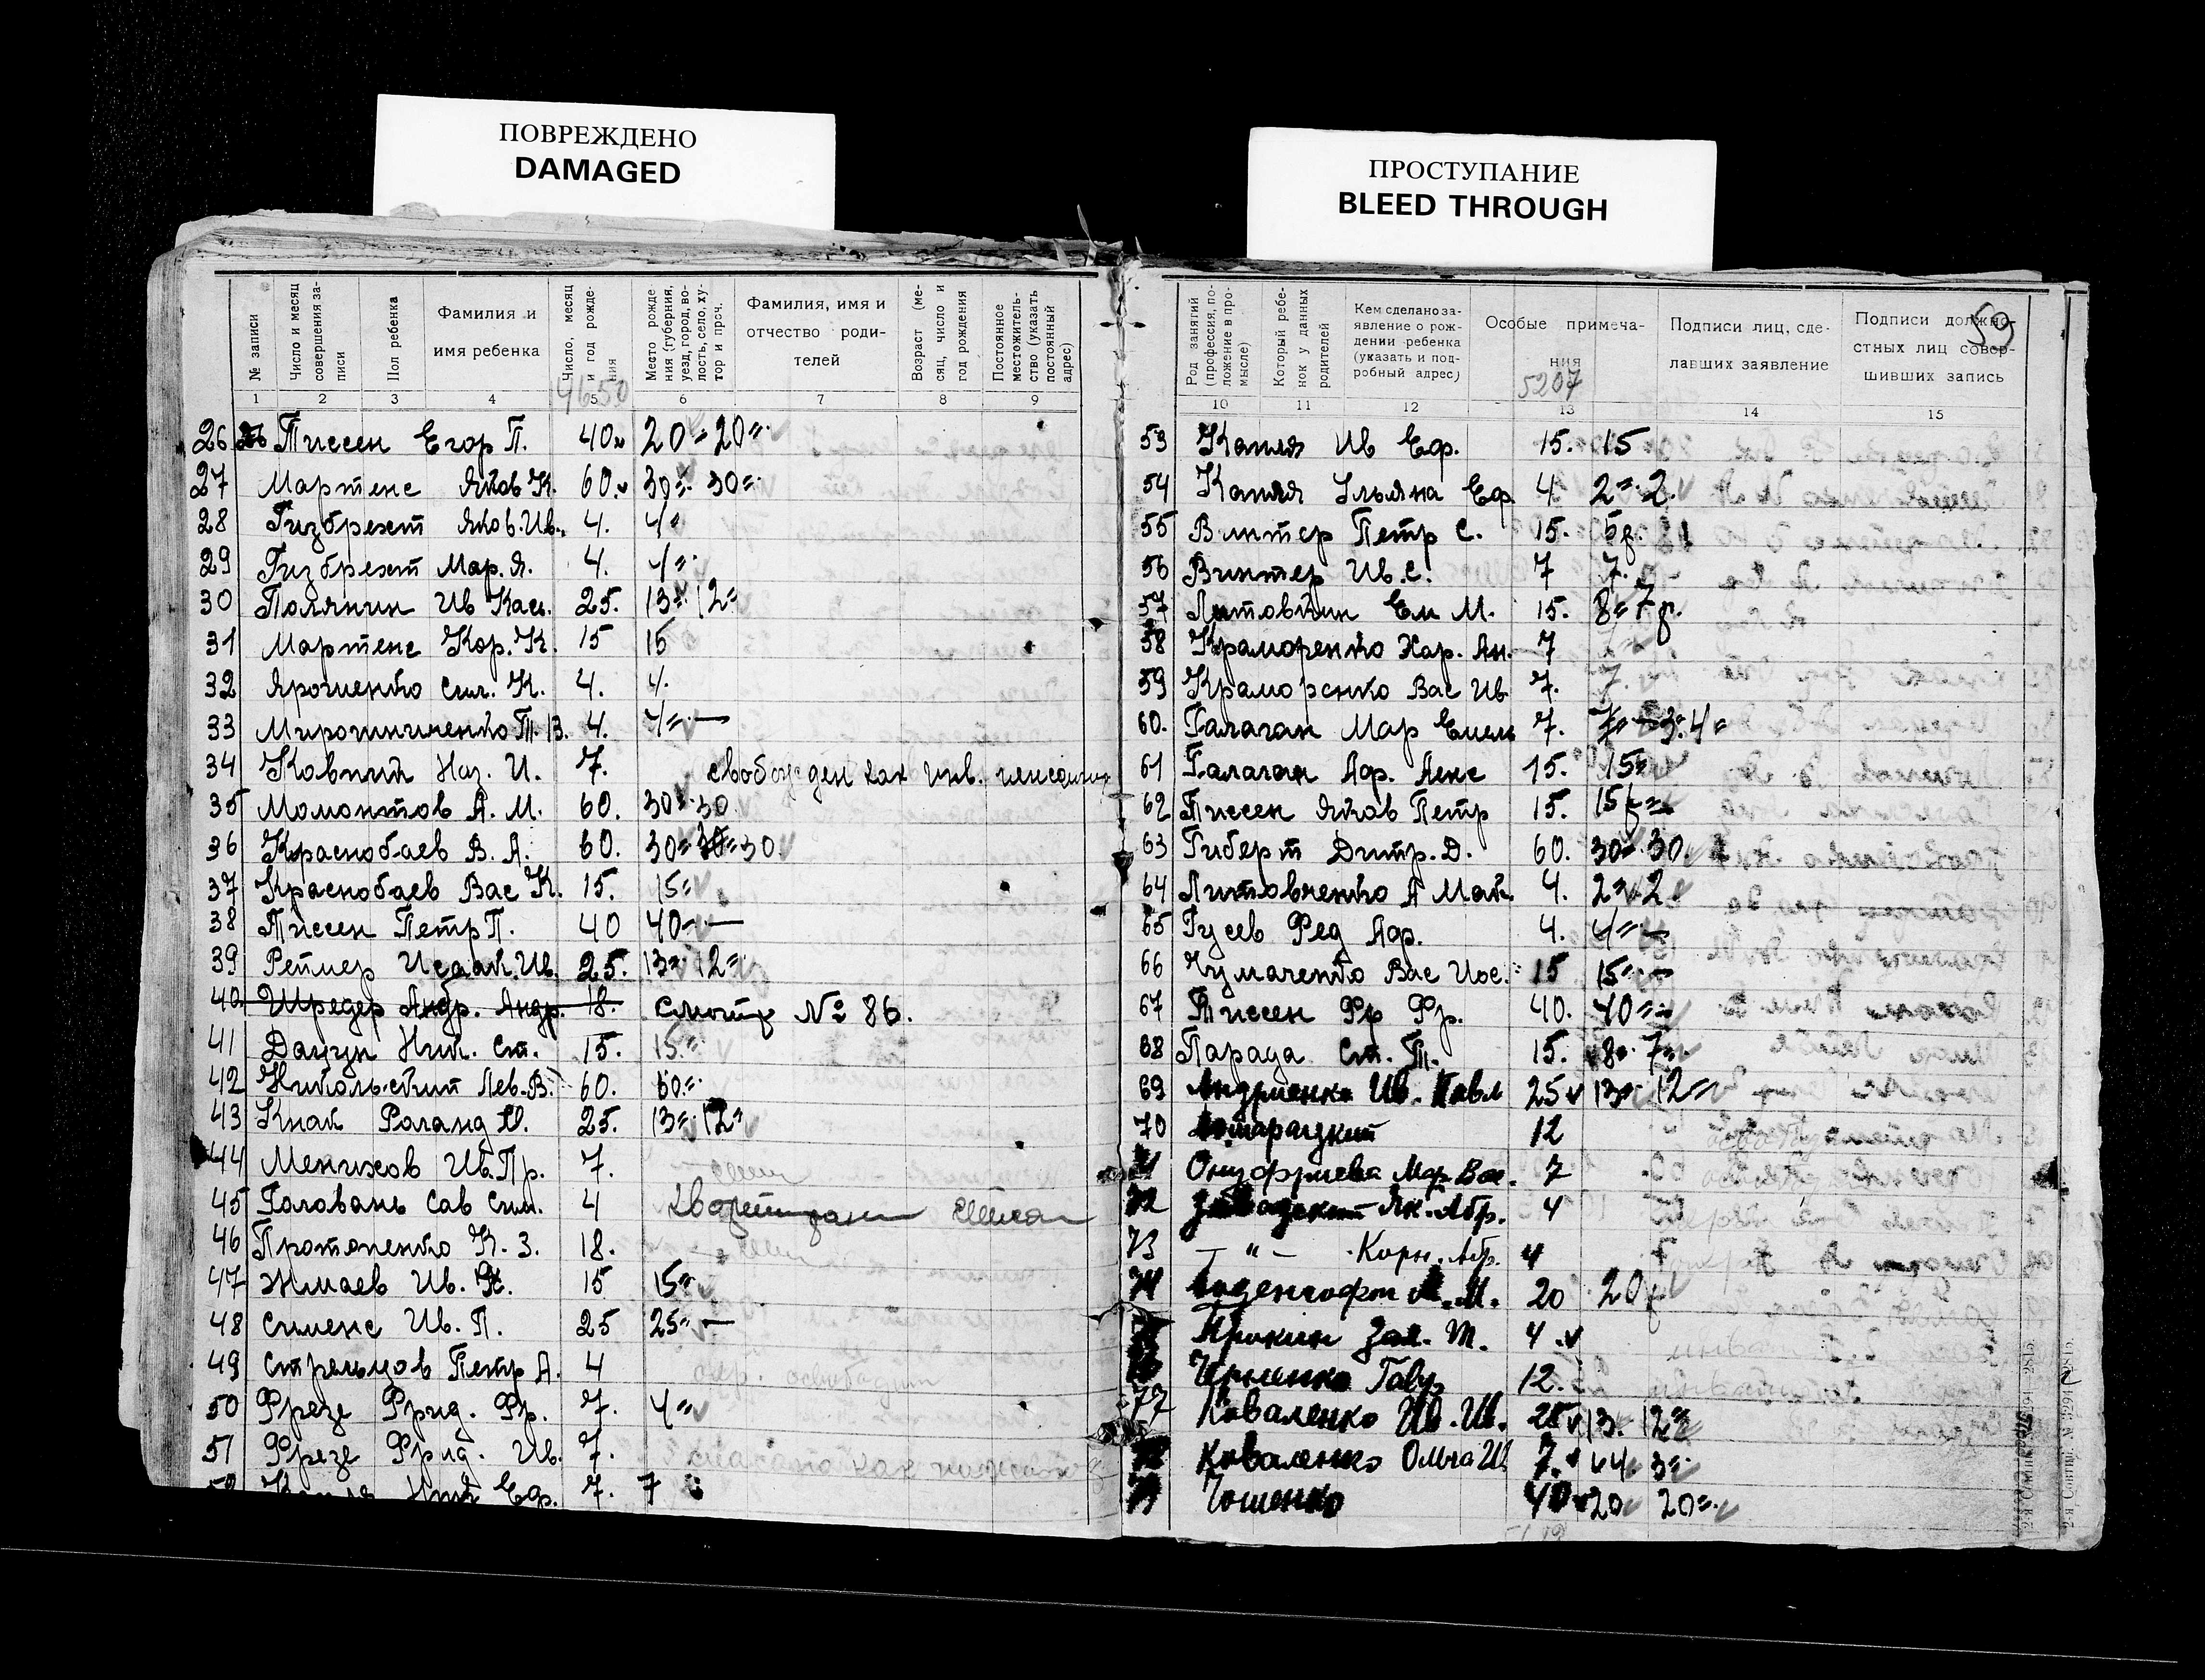 ПОВРЕЖДЕНО
DAMAGED
ПРОСТУПАНИЕ
BLEED THROUGH
№ записи
Число и месяц совершения записи
Пол ребенка
Фамилия и
имя ребенка
Число, месяц и год рождения
Место рождения (губерния, уезд, город, волость, село, хутор и проч.
Фамилия, имя и
отчество роди-
телей
Возраст (месяц, число и год рождения
Постоянное местожительство (указать постоянный адрес)
1 2 3 4 5 6 7 8 9
4650
26 Тиссен Егор П. 40 20 = 20=
27 Мартенс Яков К. 60. 30= 30=
28 Гизбрехт Яков.Ив. 4. 4=
29 Гизбрехт Мар. Я. 4. 4=
30 Полянин Ив Кась. 25. 13= 12=
31 Мартенс Кор. К. 15 15
32 Ярошенко Сим. К. 4. 4.
33 Мирошниченко Т. В. 4. 4= —
34 Ковний Наз. И. 7. свобожден как инв.
35 Момонтов А. М. 60. 30 30.
36 Краснобаев В. А. 60. 30= 30= 30.
37 Краснобаев Вас К. 15. 15=
38 Тиссен Петр П. 40 40 —
39 Реймер Исаак. Ив. 25. 13= 12=
40 Шредер Андр. Андр. 18. смотр № 86.
41 Дацун Ник. Ст. 15. 15.=
42 Никольский Лев. В. 60. 60.=
43 Кнак Роланд 25. 13= 12=
44 Менжов Ив. Пр. 7.
45 Головань Сав Сим. 4
46 Протопенко К. З. 18.
47 Жмаев Ив. К. 15 15=
48 Сименс Ив. П. 25 25= —
49 Стрельцов Петр А. 4
50 Фрезе Фрид. Фр. 7. 4=
51 Фрезе Фрид. Ив. 7.
52 Капля Ник Еф. 7. 7
59
Род занятий (профессия, положение в промысле)
Который ребенок у данных родителей
Кем сделано за-
явление о рож-
дении ребенка
(указать и под-
робный адрес)
Особые примеча-
ния
Подписи лиц, сде-
лавших заявление
Подписи должно-
стных лиц совер-
шивших запись
5207
10 11 12 13 14 15
53 Капля Ив Еф. 15. 15
54 Капля Ульяна Еф. 4 2= 2.
55 Винтер Петр С. 15. 15
56 Винтер Ив. С. 7 7.
57 Литовкин Ем М. 15. 8= 7
58 Краморенко Хар. Ан. 7
59 Краморенко Вас Ив. 7. 7.
60. Галаган Мар Емель 7. 7= 3= 4=
61 Галаган Аф. Алек 15. 15=
62 Тиссен Яков Петр 15. 15
63 Гиберт Дитр. Д. 60. 30= 30.
64 Литовченко А Мат. 4. 2= 2
65 Гусев Фед Аф. 4. 4= —
66 Чумаченко Вас Иос. 15 15= —
67 Тиссен Фр Фр. 40. 40=
68 Парада Ст. Т. 15. 8= 7=
69 Андриенко Ив. Павл 25 13= 12=
70 12
71 Онуфриева Мар. Вас. 7
72 Завадский Як. Абр. 4
73 — " — Корн. Абр. 4
74 20 20
4
12.
77 Коваленко Ив. Ив. 25 13. 12=
Коваленко Ольга И. 7. 4. 3=
40 20 20=